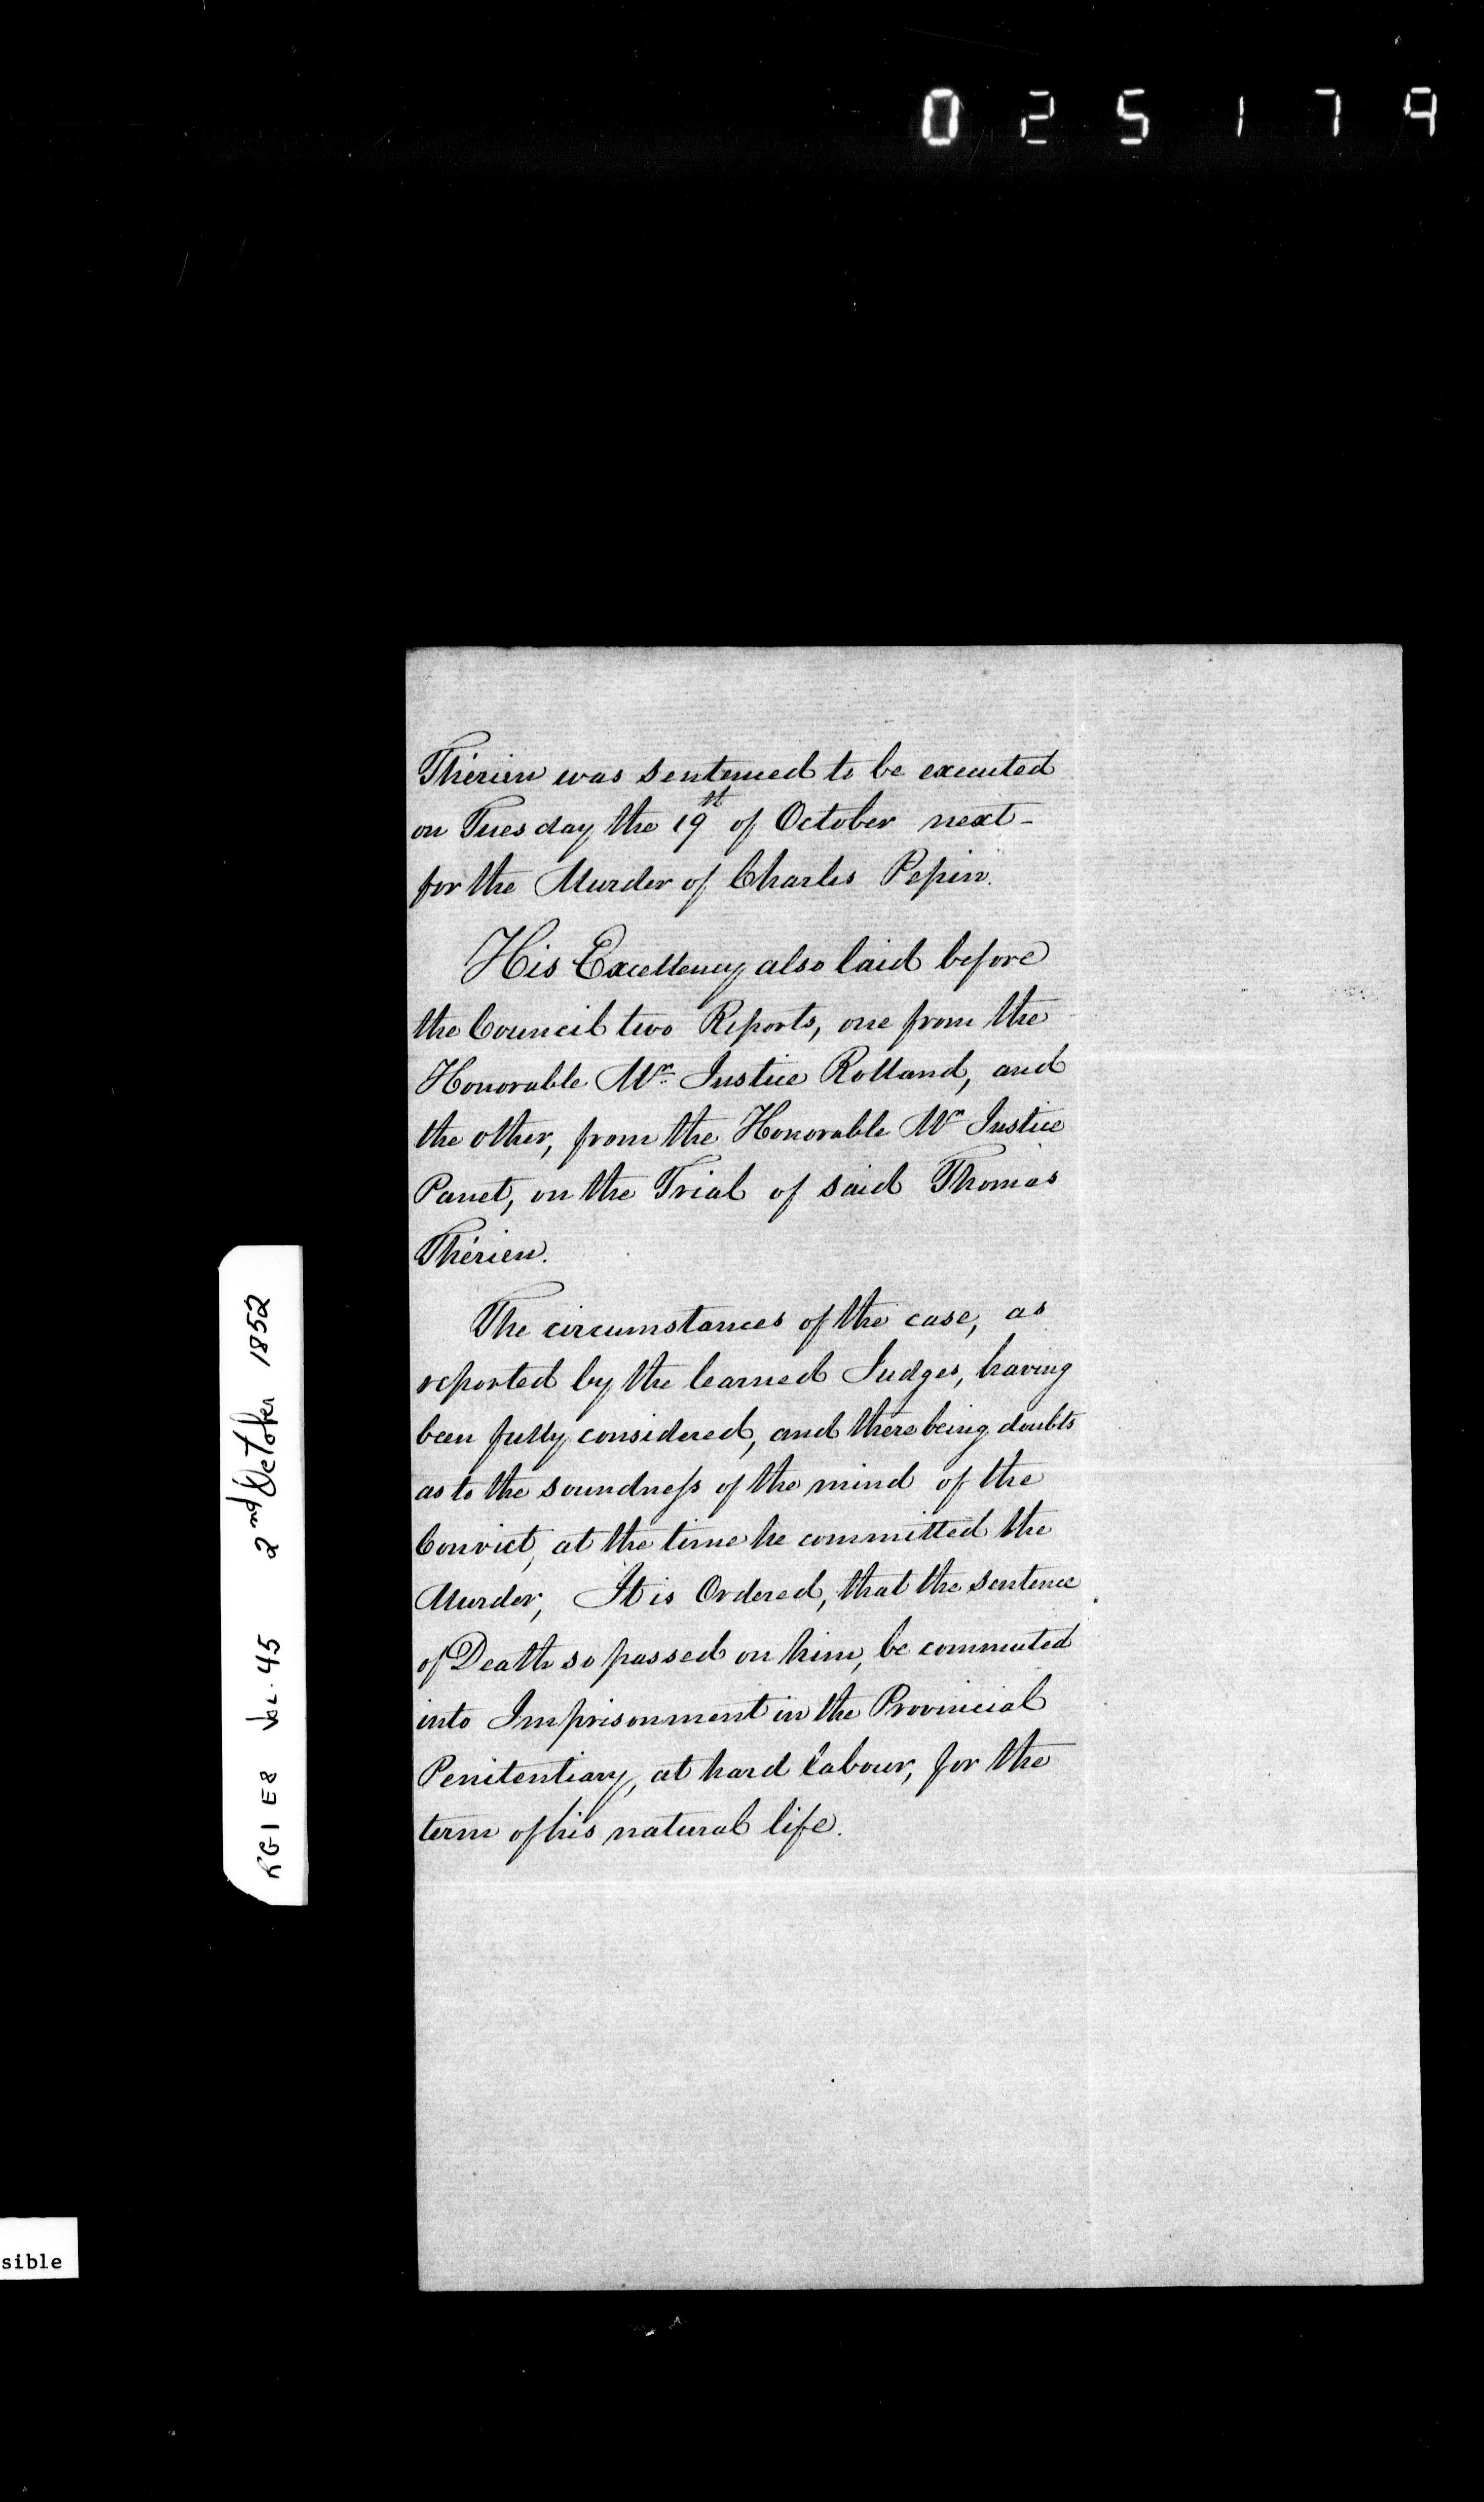 025179
Thérien was sentenced to be executed
on Tuesday the 19th of October next-
for the Murder of Charles Pepin.
His Excellency also laid before
the Council two Reports, one from the
Honorable Mr. Justice Rolland, and
the other, from the Honorable Mr Justice
Panet, on the Trial of said Thomas
Thérien.
The circumstances of the case, as
reported by the learned Judges, having
been fully considered, and there being doubts
as to the soundness of the mind of the
Convict, at the time he committed the
Murder, It is Ordered, that the sentence
of Death so passed on him, be commuted
into Imprisonment in the Provincial
Penitentiary, at hard labour, for the
term of his natural life.
RG1 E8 Vol. 45 2nd October 1852
sible